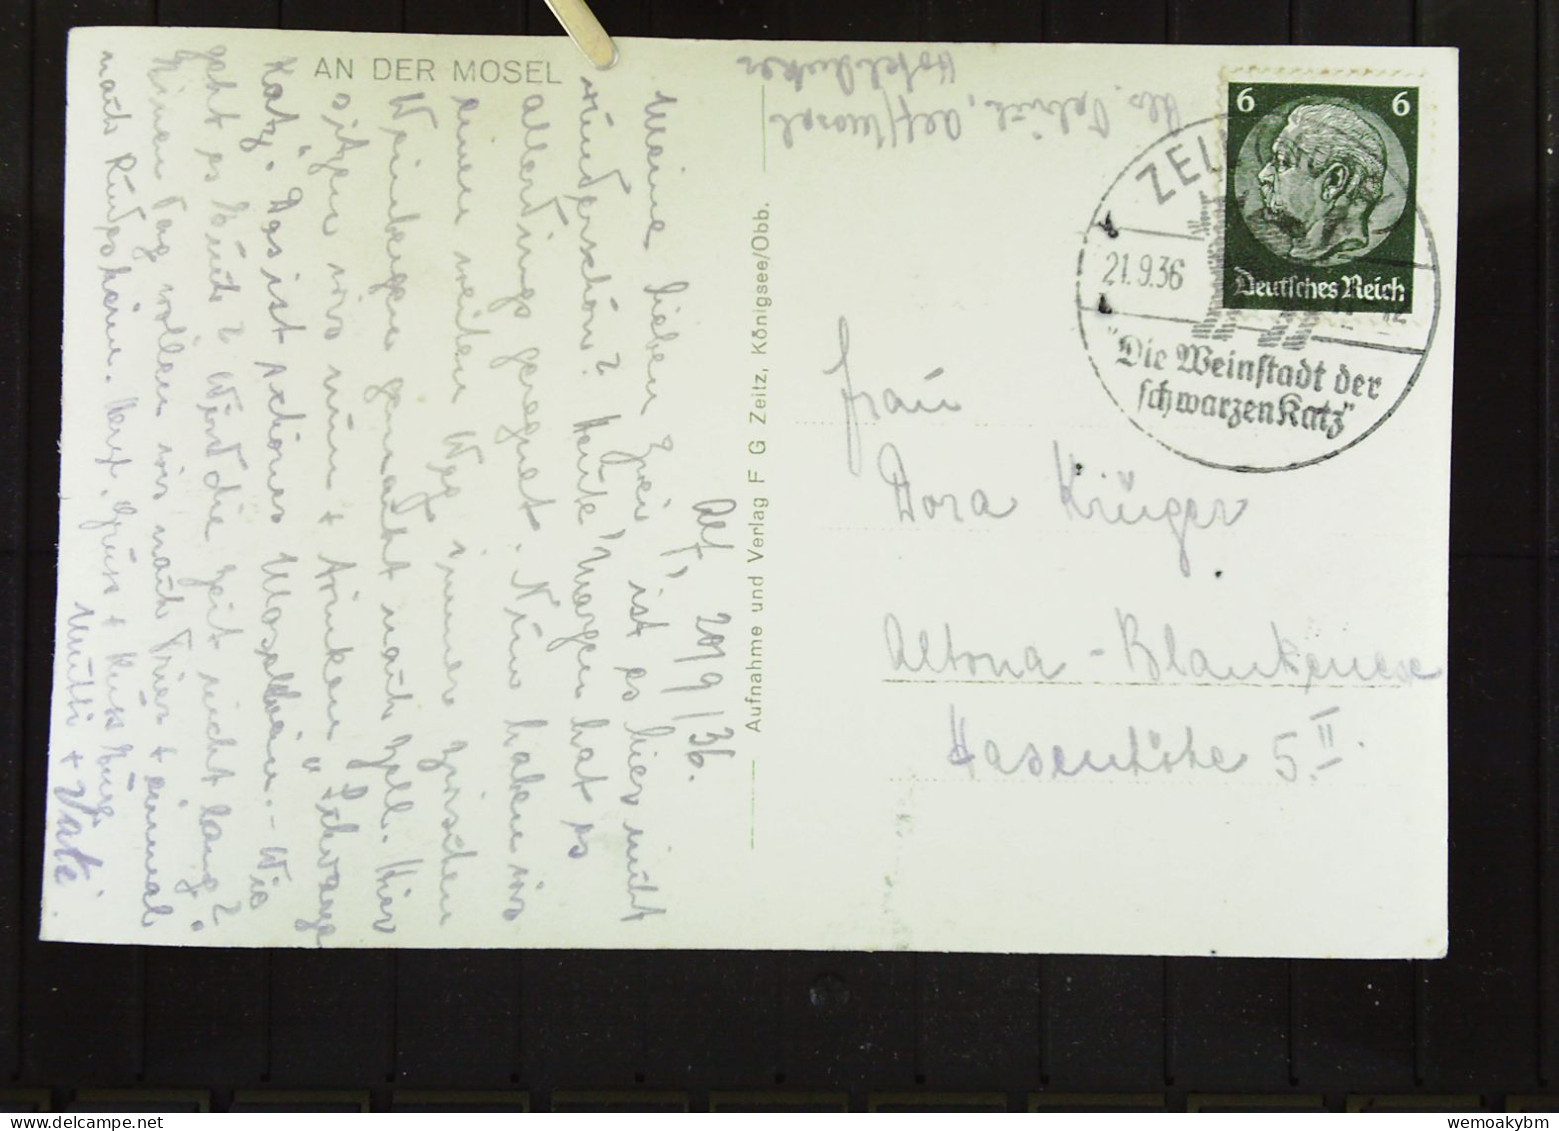 AN DER MOSEL
Alf 20/9/36.
Meine lieben Zwei, ist es hier nicht
wunderschön? Heute Morgen hat es
allerdings geregnet. Nun haben wir
einen weiten Weg immer zwischen
Weinbergen gemacht nach Zell. Hier
sitzen wir nun + trinken "Schwarze
Katz". Das ist schöner Moselwein. - Wie
geht es Euch? Wird die Zeit nicht lang?
Einen Tag wollen wir nach Trier + einmal
nach Rüdesheim. Herzl. Gruss + Kuss Eure
Mutti + Vati.
Aufnahme und Verlag F G Zeitz, Königsee/Obb.
Abs. Alf/Mosel
Hotel
6 6
Deutsches Reich
ZELL
21.9.36
"Die Weinstadt der
schwarzen Katz"
Frau
Dora Krüger
Altona-Blankenese
Hasenhöhe 5.II.
www.delcampe.net
wemoakybm